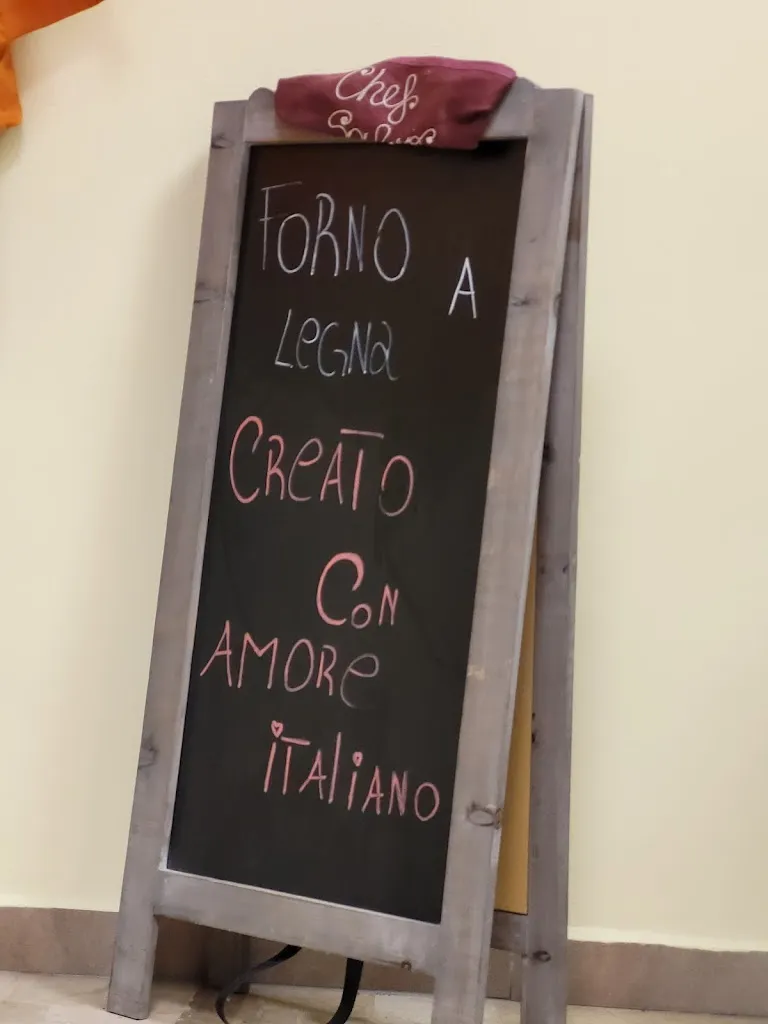 Chef
FORNO A
LeGNa
CReATO
CoN
AMORe
iTAliANO